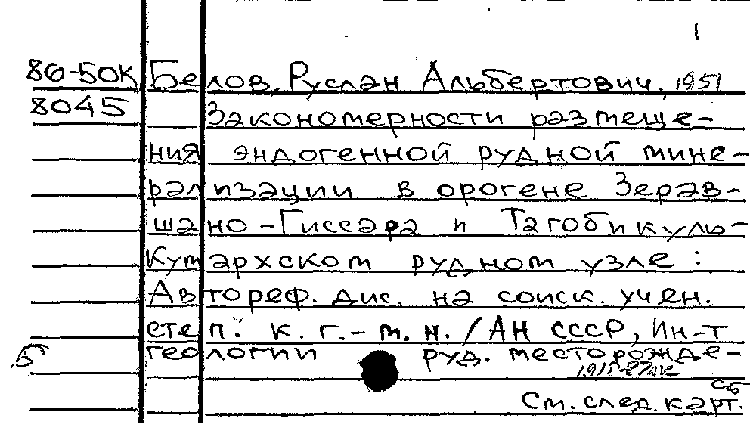 1
86-50К Белов, Руслан Альбертович, 1951
8045 Закономерности размеще-
ния эндогенной рудной мине-
рализации в орогене Зерав-
шано-Гиссара и Тагобикуль-
Кумархском рудном узле :
Автореф. дис. на соиск. учен.
степ. к. г.-м. н. / АН СССР, Ин-т
геологии руд. месторожде-
См. след. карт.